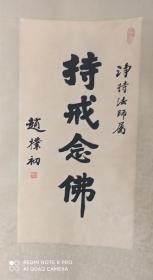 净持法师属
持戒念佛
趙樸初
REDMI NOTE 8 PRO
AI QUAD CAMERA